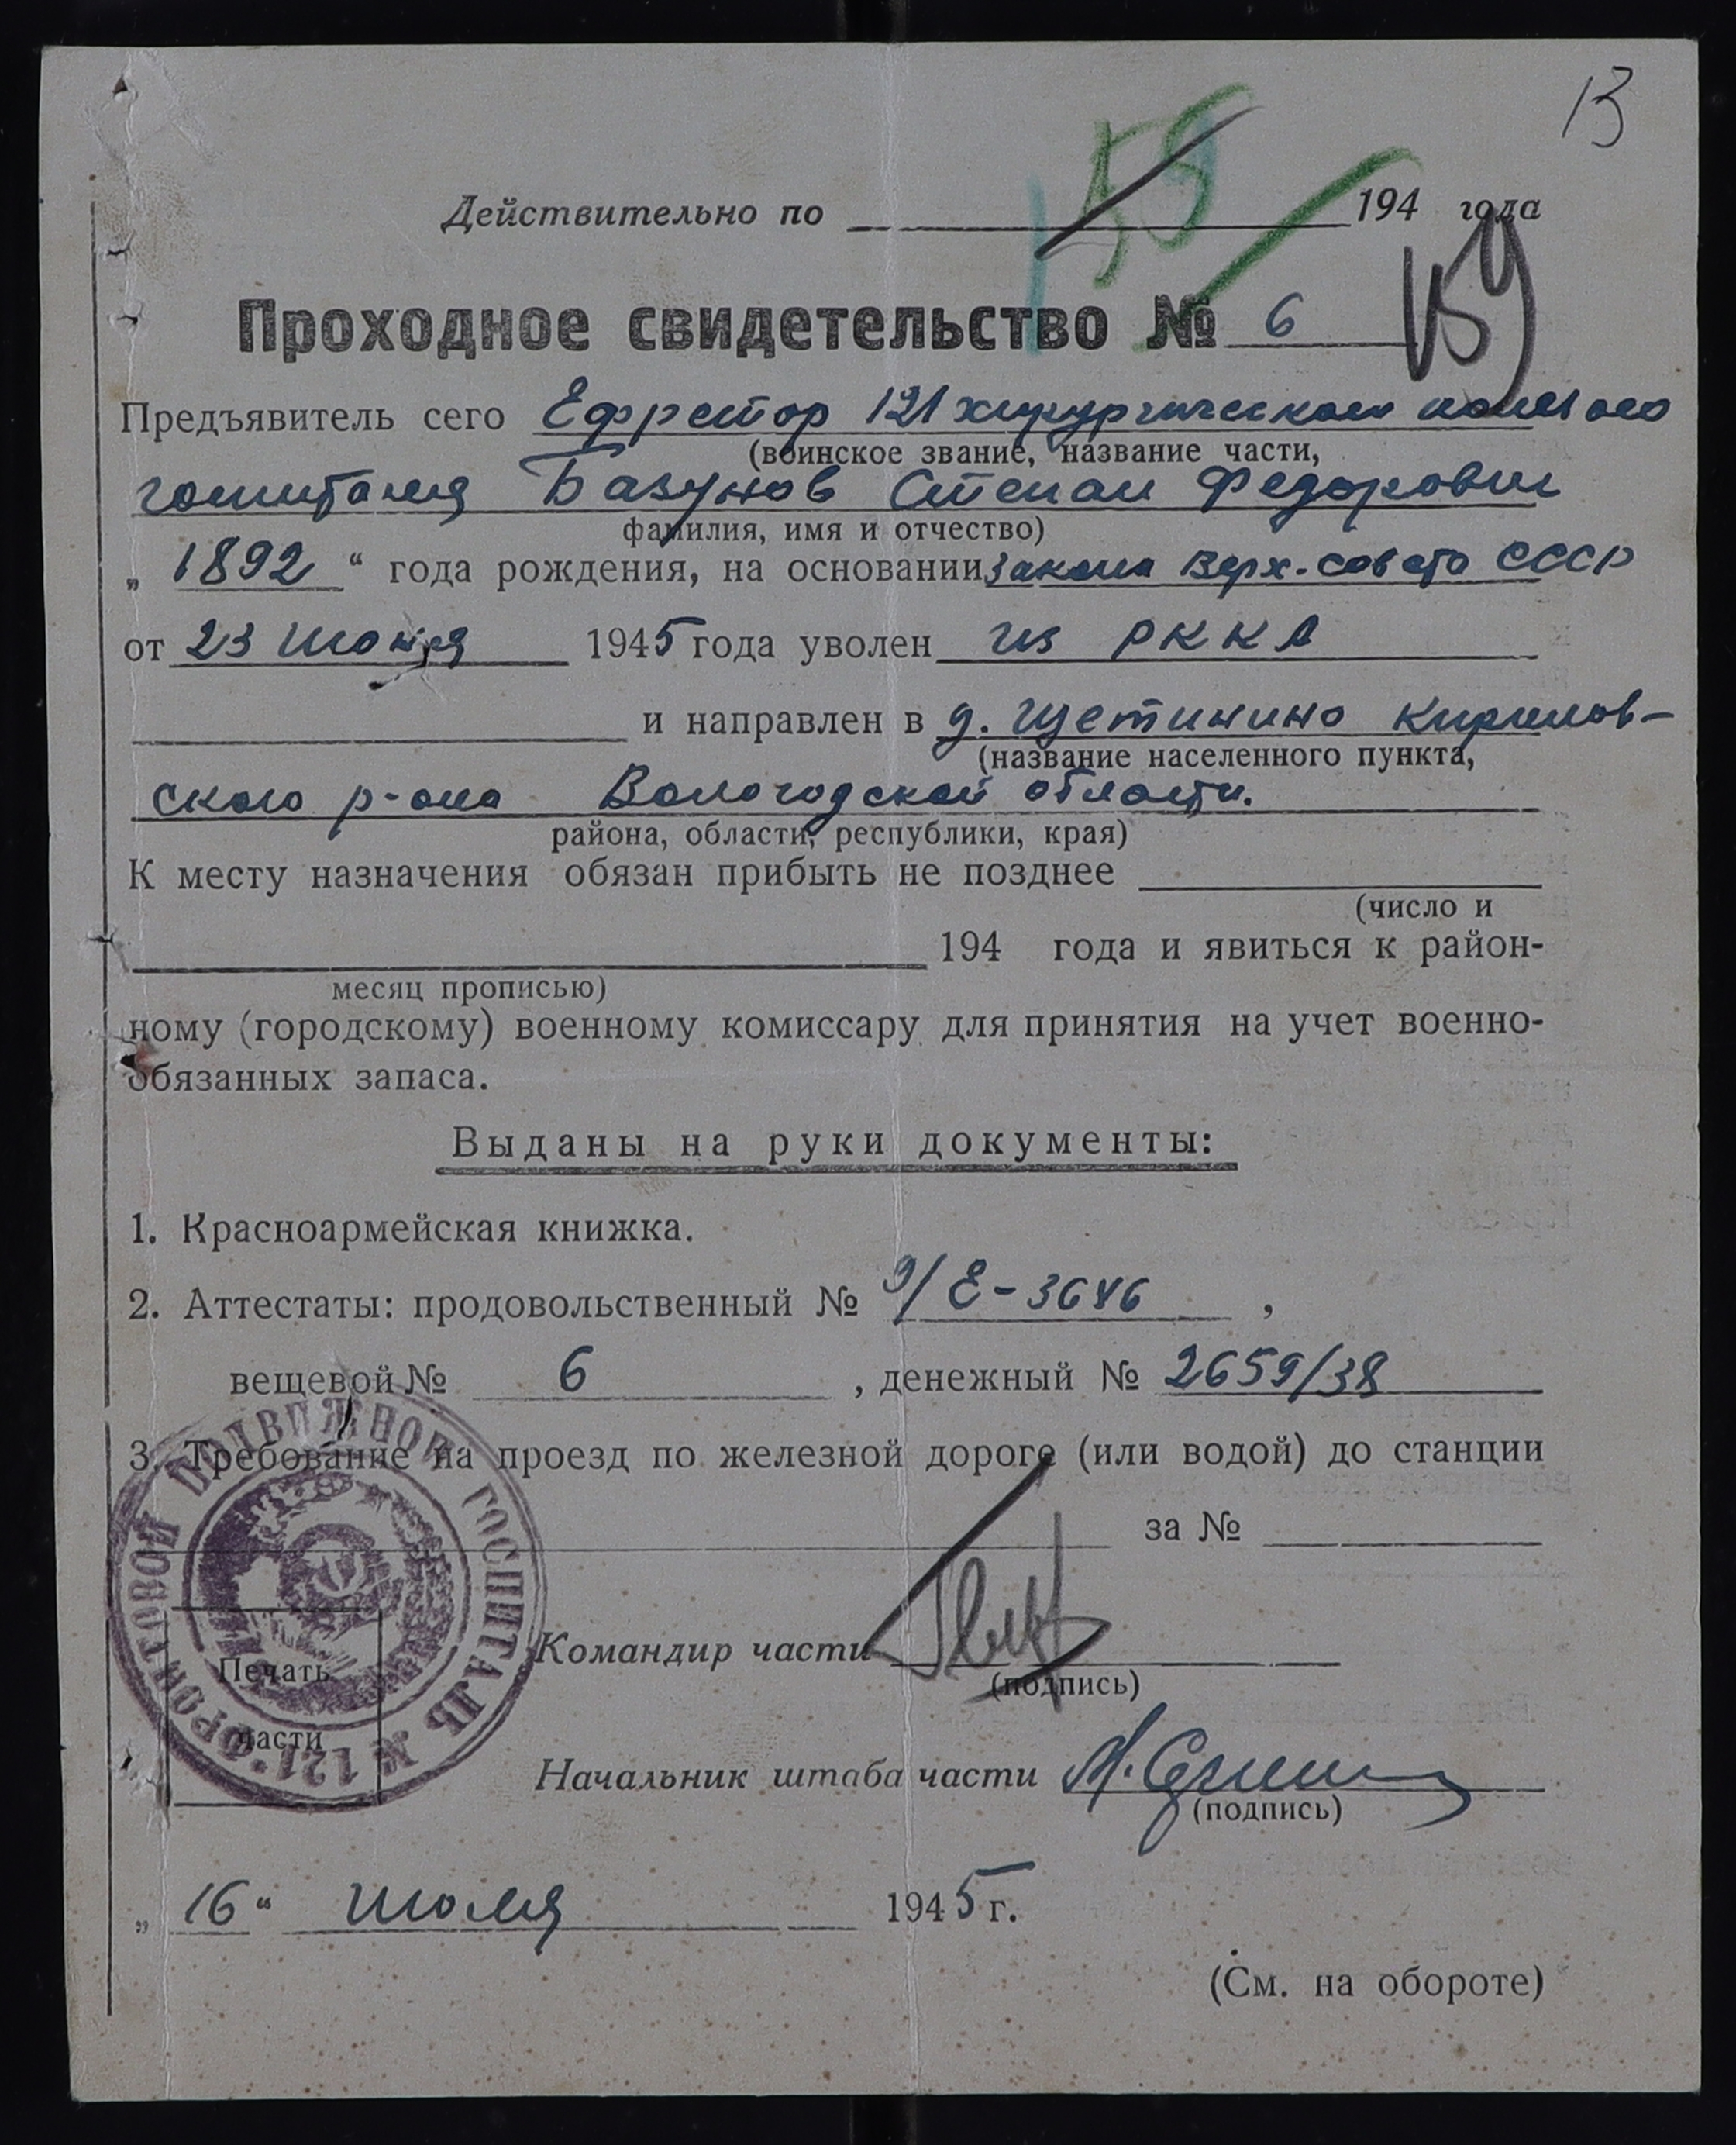 13
159
Действительно по 194 года
159
Проходное свидетельство № 6
Предъявитель сего Ефрейтор 121 хирургического полевого
(воинское звание, название части,
госпиталя Базунов Степан Федорович
фамилия, имя и отчество)
„ 1892 “ года рождения, на основании Закона Верх. совета СССР
от 23 Июня 1945 года уволен из РККА
и направлен в д. Щетинино Кирилов-
(название населенного пункта,
ского р-она Вологодской области.
района, области, республики, края)
К месту назначения обязан прибыть не позднее
(число и
194 года и явиться к район-
месяц прописью)
ному (городскому) военному комиссару для принятия на учет военно-
обязанных запаса.
Выданы на руки документы:
1. Красноармейская книжка.
2. Аттестаты: продовольственный № 9/Е-3646 ,
вещевой № 6 , денежный № 2659/38
3. Требование на проезд по железной дороге (или водой) до станции
за №
ФРОНТОВОЙ ПОДВИЖНОЙ ГОСПИТАЛЬ № 121
Печать
части
Командир части
(подпись)
Начальник штаба части
(подпись)
„ 16 “ Июля 1945 г.
(См. на обороте)